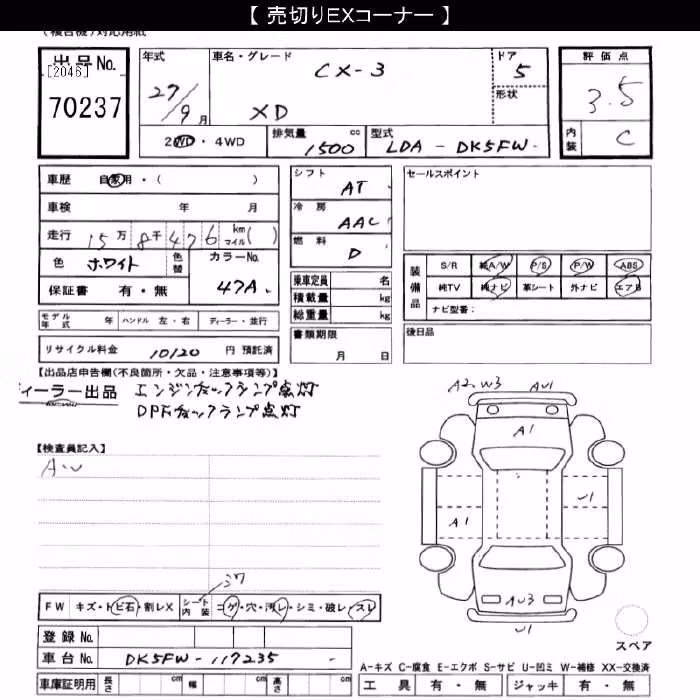 【 売切りEXコーナー 】
(複合機)対応用紙
出品No.
[2046]
70237
年式 27/9月
車名・グレード CX-3 XD
ドア 5
形状
評価点 3.5
内装 C
2WD・4WD
排気量 1500 cc
型式 LDA - DK5FW
車歴 自家用・( )
車検 年 月
走行 15万8千476 km マイル( )
色 ホワイト 色替
カラーNo. 47A
保証書 有・無
シフト AT
冷房 AAC
燃料 D
乗車定員 名
積載量 kg
総重量 kg
セールスポイント
装備品 S/R 純A/W P/S P/W ABS
純TV 純ナビ 革シート 外ナビ エアB
ナビ型番:
モデル年式 年 ハンドル 左・右 ディーラー・並行
書類期限 月 日
後日品
リサイクル料金 10120 円 預託済
【出品店申告欄(不良箇所・欠品・注意事項等)】
ィーラー出品 エンジンチェックランプ点灯
DPFチェックランプ点灯
【検査員記入】
A2 W3 AU1
A1
U1
A1
AU3
U1
スペア
FW キズ・トビ石・割レX シート内装 コゲ・穴・汚レ・シミ・破レ・スレ
登録No.
車台No. DK5FW - 117235 -
A-キズ C-腐食 E-エクボ S-サビ U-凹ミ W-補修 XX-交換済
車庫証明用 長さ cm 幅 cm 高さ cm
工具 有・無 ジャッキ 有・無